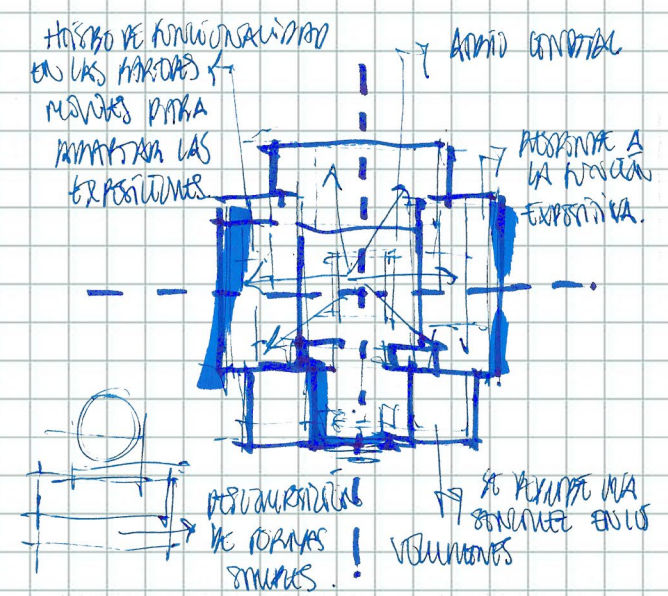 DE FUNCIONALIDAD
EN LAS PAREDES
MOVILES PARA
ADAPTAR LAS
EXPOSICIONES.
ATRIO CENTRAL
RESPONDE A
LA FUNCIÓN
EXPOSITIVA.
DESCOMPOSICIÓN
DE FORMAS
SIMPLES.
SE UNA
SENCILLEZ EN LOS
VOLUMENES